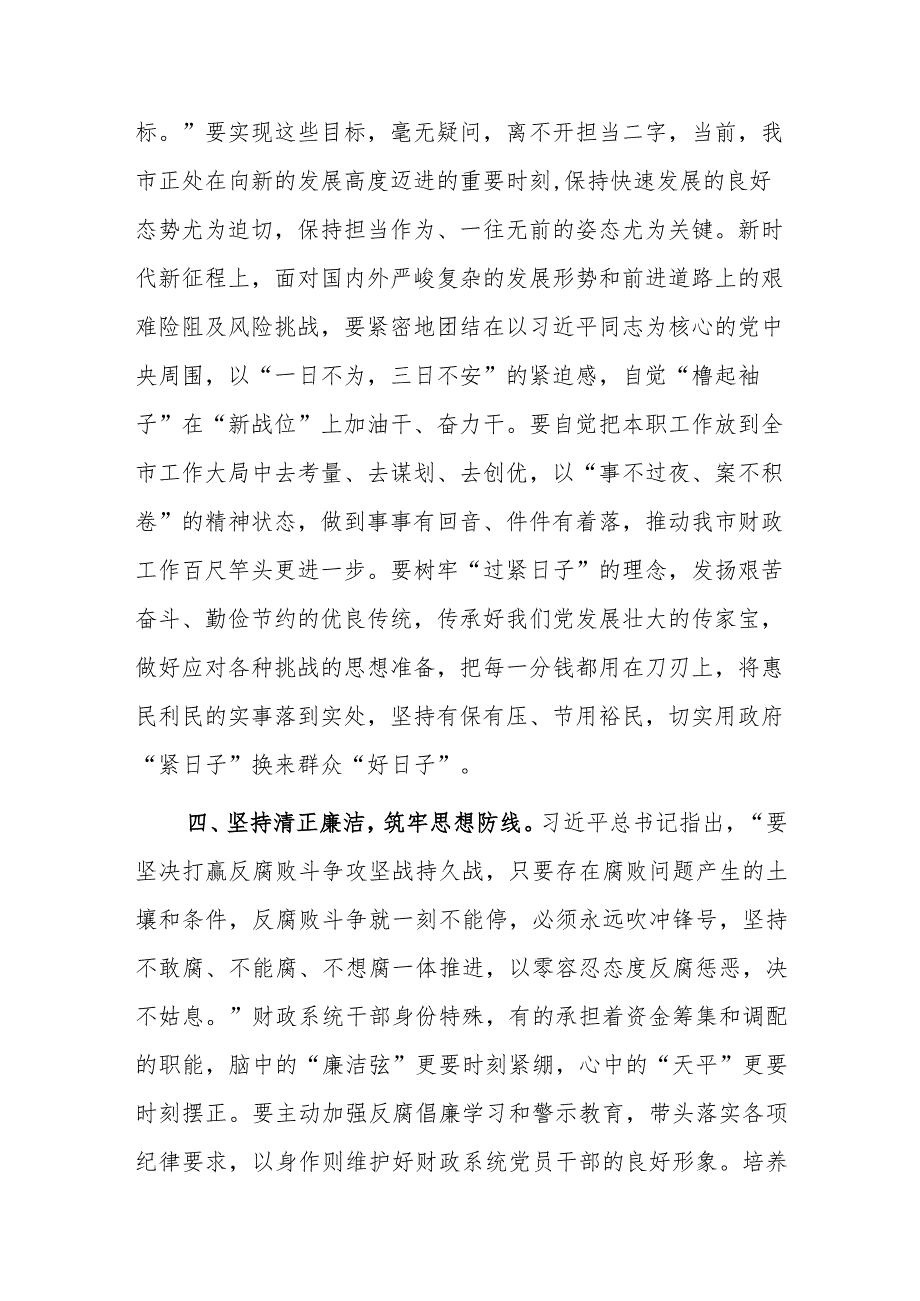 标。”要实现这些目标，毫无疑问，离不开担当二字，当前，我
市正处在向新的发展高度迈进的重要时刻,保持快速发展的良好
态势尤为迫切，保持担当作为、一往无前的姿态尤为关键。新时
代新征程上，面对国内外严峻复杂的发展形势和前进道路上的艰
难险阻及风险挑战，要紧密地团结在以习近平同志为核心的党中
央周围，以“一日不为，三日不安”的紧迫感，自觉“橹起袖
子”在“新战位”上加油干、奋力干。要自觉把本职工作放到全
市工作大局中去考量、去谋划、去创优，以“事不过夜、案不积
卷”的精神状态，做到事事有回音、件件有着落，推动我市财政
工作百尺竿头更进一步。要树牢“过紧日子”的理念，发扬艰苦
奋斗、勤俭节约的优良传统，传承好我们党发展壮大的传家宝，
做好应对各种挑战的思想准备，把每一分钱都用在刀刃上，将惠
民利民的实事落到实处，坚持有保有压、节用裕民，切实用政府
“紧日子”换来群众“好日子”。
四、坚持清正廉洁，筑牢思想防线。习近平总书记指出，“要
坚决打赢反腐败斗争攻坚战持久战，只要存在腐败问题产生的土
壤和条件，反腐败斗争就一刻不能停，必须永远吹冲锋号，坚持
不敢腐、不能腐、不想腐一体推进，以零容忍态度反腐惩恶，决
不姑息。”财政系统干部身份特殊，有的承担着资金筹集和调配
的职能，脑中的“廉洁弦”更要时刻紧绷，心中的“天平”更要
时刻摆正。要主动加强反腐倡廉学习和警示教育，带头落实各项
纪律要求，以身作则维护好财政系统党员干部的良好形象。培养